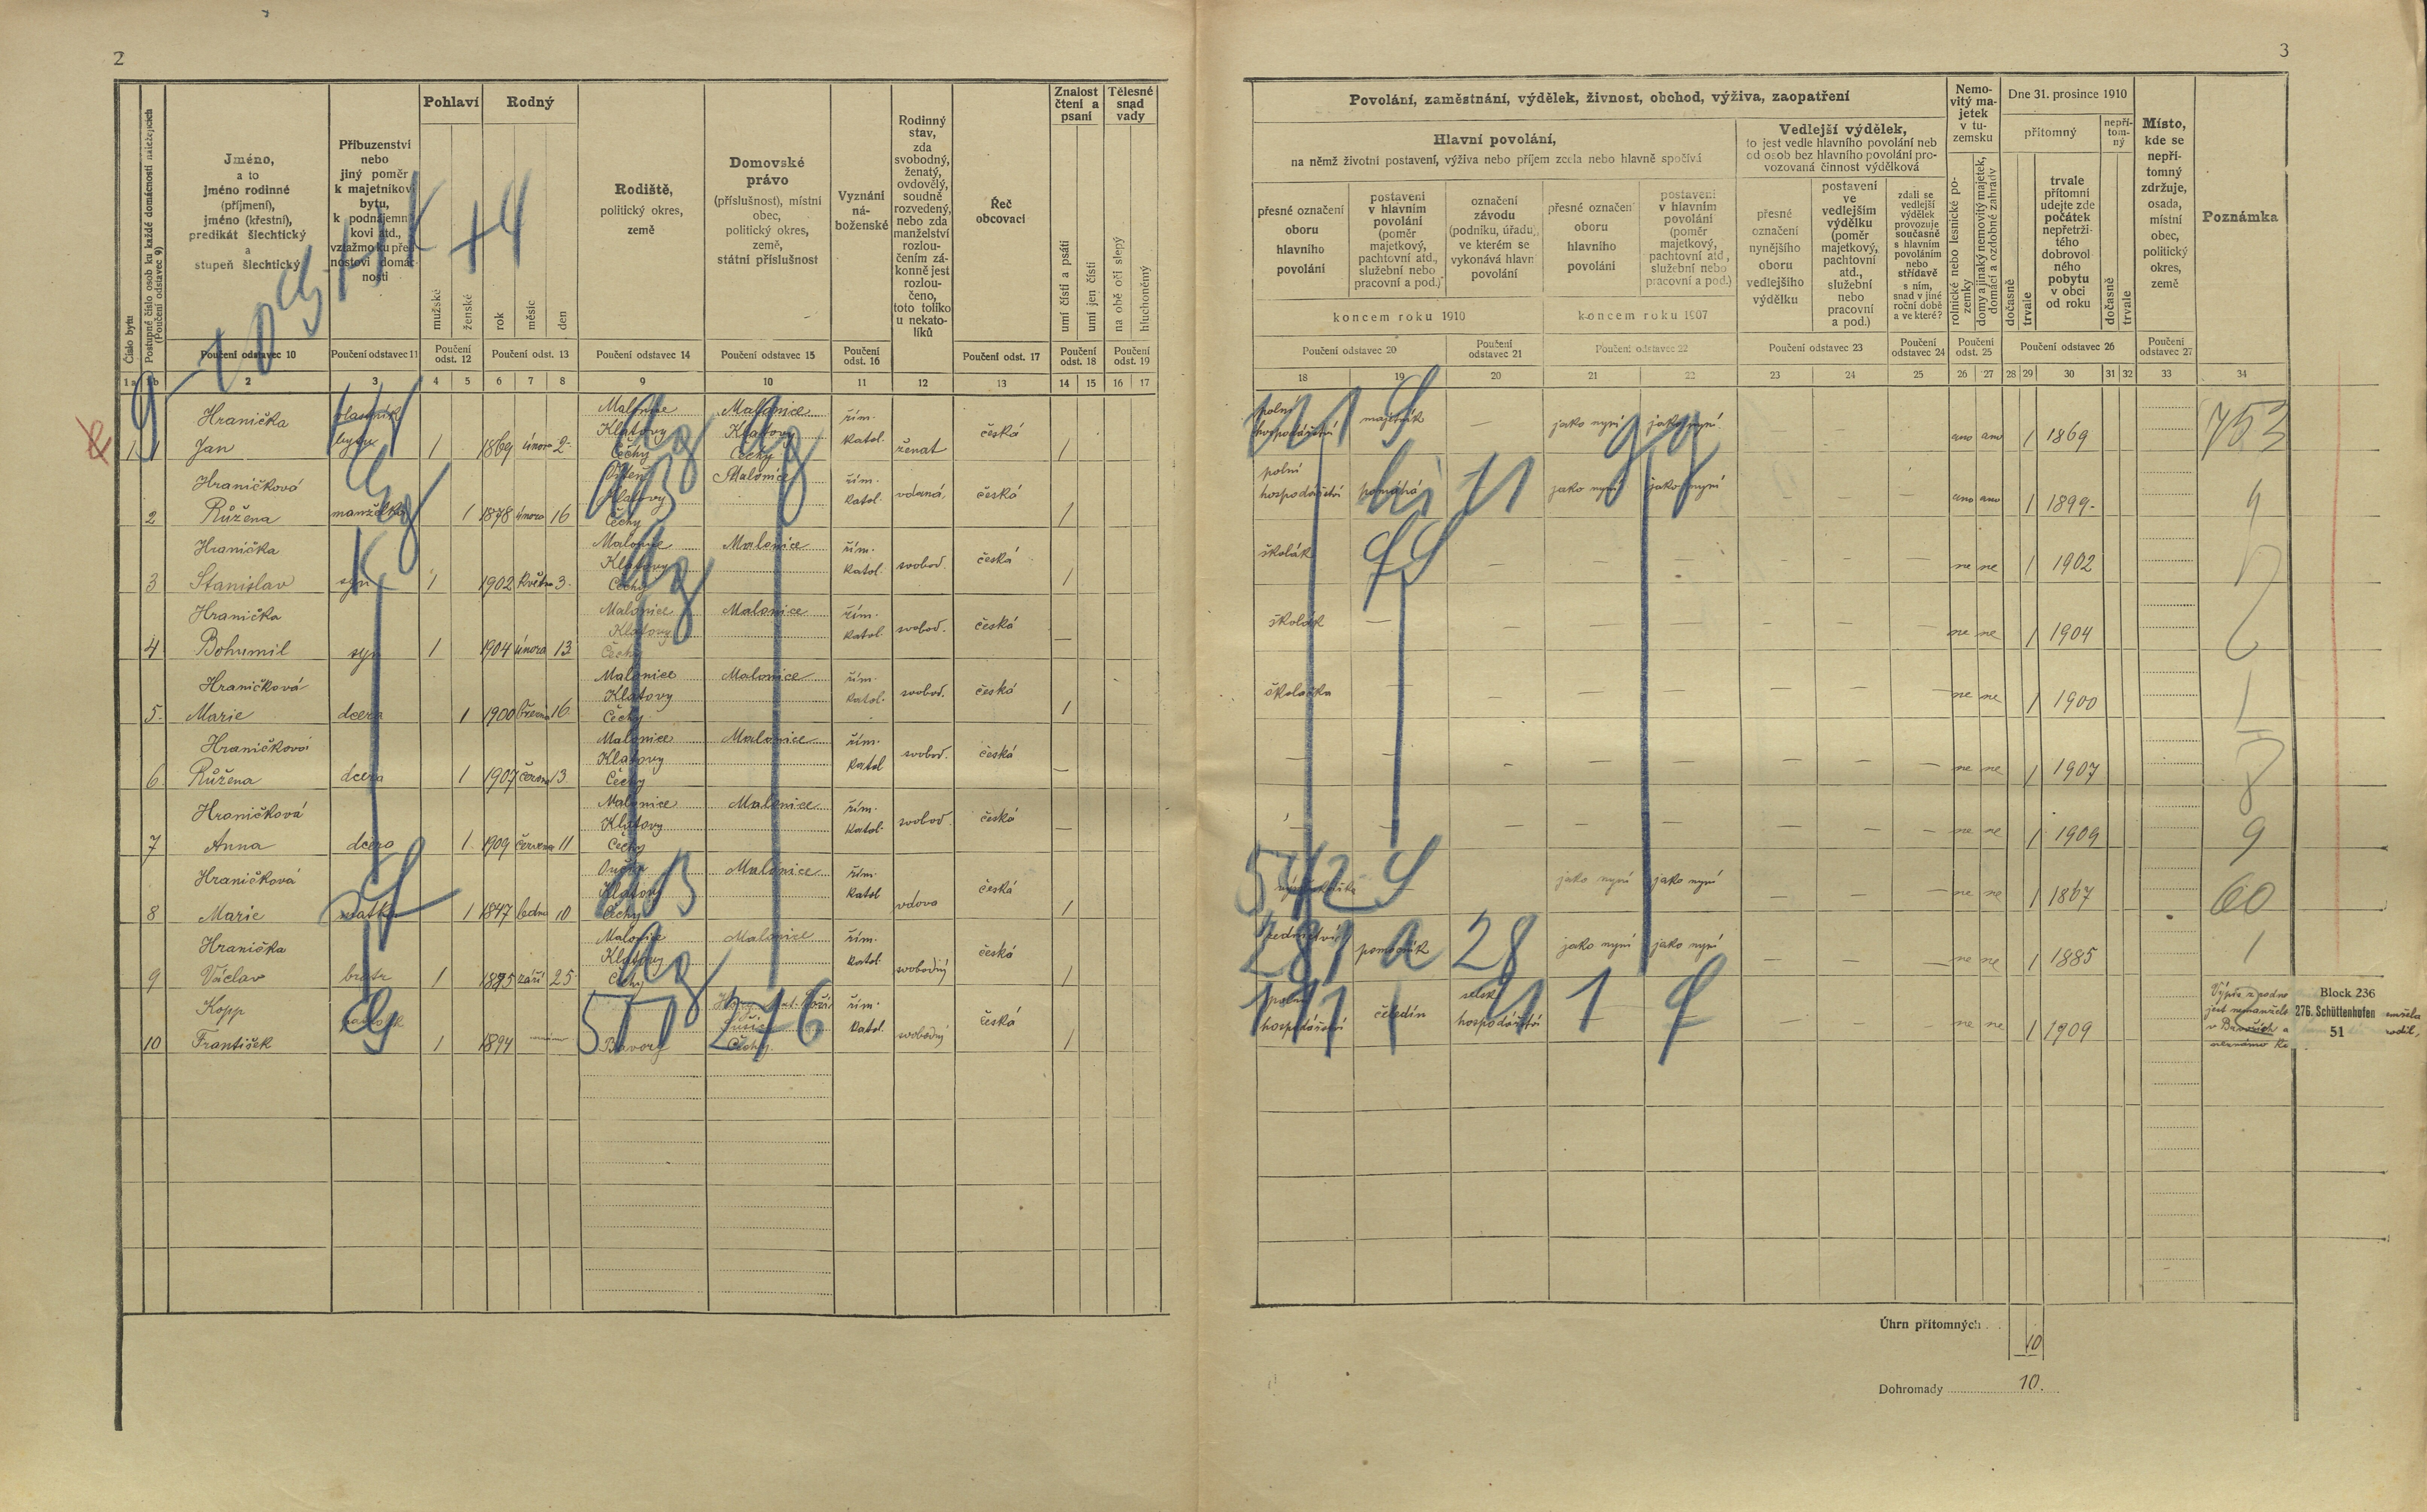 2
Jméno,
a to
jméno rodinné
(příjmení),
jméno (křestní),
predikát šlechtický
a
stupeň šlechtický
Příbuzenství
nebo
jiný poměr
k majetníkovi
bytu,
k podnájemní-
kovi atd.,
vztažmo ku před-
nostovi domác-
nosti
Pohlaví
mužské
ženské
Rodný
rok
měsíc
den
Rodiště,
politický okres,
země
Domovské
právo
(příslušnost), místní
obec,
politický okres,
země,
státní příslušnost
Vyznání
ná-
boženské
Rodinný
stav,
zda
svobodný,
ženatý,
ovdovělý,
soudně
rozvedený,
nebo zda
manželství
rozlou-
čením zá-
konně jest
rozlou-
čeno,
toto toliko
u nekato-
líků
Řeč
obcovací
Znalost
čtení a
psaní
umí čísti a psáti
umí jen čísti
Tělesné
snad
vady
na obě oči slepý
hluchoněmý
Číslo bytu
Postupné číslo osob ku každé domácnosti náležejících
(Poučení odstavec 9)
Poučení odstavec 10
Poučení odstavec 11
Poučení
odst. 12
Poučení odst. 13
Poučení odstavec 14
Poučení odstavec 15
Poučení
odst. 16
Poučení odst. 17
Poučení
odst. 18
Poučení
odst. 19
2 3 4 5 6 7 8 9 10 11 12 13 14 15 16 17
Hranička
Jan
1 1869 února 2
Malonice
Klatovy
Čechy
Malonice
Klatovy
Čechy
řím.
katol.
ženat
česká
1
2
Hraničková
Růžena
manželka
1 1878 února 16
Klatovy
Čechy
Malonice
řím.
katol.
vdaná
česká
1
3
Hranička
Stanislav
syn
1 1902 květn 3
Malonice
Klatovy
Čechy
Malonice
řím.
katol.
svobod.
česká
1
4
Hranička
Bohumil
syn
1 1904 února 13
Malonice
Klatovy
Čechy
Malonice
řím.
katol.
svobod.
česká
—
5
Hraničková
Marie
dcera
1 1900 16
Malonice
Klatovy
Čechy
Malonice
řím.
katol.
svobod.
česká
1
6
Hraničková
Růžena
dcera
1 1907 13
Malonice
Klatovy
Čechy
Malonice
řím.
katol
svobod.
česká
—
7
Hraničková
Anna
dcera
1 1909 června 11
Malonice
Klatovy
Čechy
Malonice
řím.
katol.
svobod.
česká
—
8
Hraničková
Marie
matka
1 1847 ledna 10
Klatovy
Čechy
Malonice
řím.
katol
vdova
česká
1
9
Hranička
Václav
bratr
1 1885 září 25
Malonice
Klatovy
Čechy
Malonice
řím.
katol.
svobodný
česká
1
10
Kopp
František
1 1894
Bavory
Sušice
Čechy
řím.
katol.
svobodný
česká
1
3
Povolání, zaměstnání, výdělek, živnost, obchod, výživa, zaopatření
Hlavní povolání,
na němž životní postavení, výživa nebo příjem zcela nebo hlavně spočívá
přesné označení
oboru
hlavního
povolání
postavení
v hlavním
povolání
(poměr
majetkový,
pachtovní atd.,
služební nebo
pracovní a pod.)
označení
závodu
(podniku, úřadu),
ve kterém se
vykonává hlavní
povolání
přesné označení
oboru
hlavního
povolání
postavení
v hlavním
povolání
(poměr
majetkový,
pachtovní atd.,
služební nebo
pracovní a pod.)
koncem roku 1910
koncem roku 1907
Vedlejší výdělek,
to jest vedle hlavního povolání neb
od osob bez hlavního povolání pro-
vozovaná činnost výdělková
přesné
označení
nynějšího
oboru
vedlejšího
výdělku
postavení
ve
vedlejším
výdělku
(poměr
majetkový,
pachtovní
atd.,
služební
nebo
pracovní
a pod.)
zdali se
vedlejší
výdělek
provozuje
současně
s hlavním
povoláním
nebo
střídavě
s ním,
snad v jiné
roční době
a ve které?
Nemo-
vitý ma-
jetek
v tu-
zemsku
rolnické nebo lesnické po-
zemky
domy a jinaký nemovitý majetek,
domácí a ozdobné zahrady
Dne 31. prosince 1910
přítomný
dočasně
trvale
trvale
přítomní
udejte zde
počátek
nepřetrži-
tého
dobrovol-
ného
pobytu
v obci
od roku
nepří-
tom-
ný
dočasně
trvale
Místo,
kde se
nepří-
tomný
zdržuje,
osada,
místní
obec,
politický
okres,
země
Poznámka
Poučení odstavec 20
Poučení
odstavec 21
Poučení odstavec 22
Poučení odstavec 23
Poučení
odstavec 24
Poučení
odst. 25
Poučení odstavec 26
Poučení
odstavec 27
18 19 20 21 22 23 24 25 26 27 28 29 30 31 32 33 34
polní
hospodářství
majetník
—
jako nyní
jako nyní
ano ano 1 1869
753
polní
hospodářství
pomáhá
jako nyní
jako nyní
ano ano 1 1899
školák
ne ne 1 1902
školák
ne ne 1 1904
školačka
ne ne 1 1900
ne ne 1 1907
ne ne 1 1909
9
542
jako nyní
jako nyní
ne ne 1 1867
60
pomocník
28
jako nyní
jako nyní
ne ne 1 1885
1
polní
hospodářství
čeledín
selské
hospodářství
ne ne 1 1909
Block 236
276. Schüttenhofen
51
Úhrn přítomných
10
Dohromady 10.